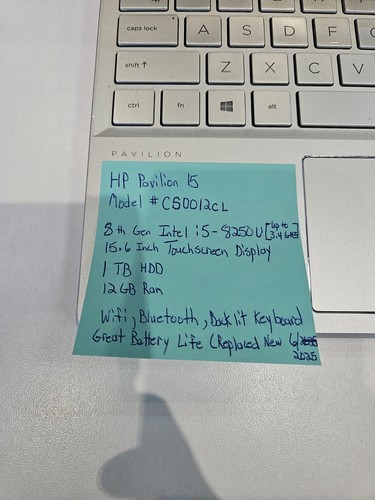 caps lock A S D F
shift ↑ Z X C V
ctrl fn alt
PAVILION
HP Pavilion 15
Model # CS0012cL
8th Gen Intel i5-8250U [up to 3.4 GHz]
15.6 Inch Touchscreen Display
1 TB HDD
12GB Ram
Wifi, Bluetooth, Backlit Keyboard
Great Battery Life (Replaced New 6/
2025